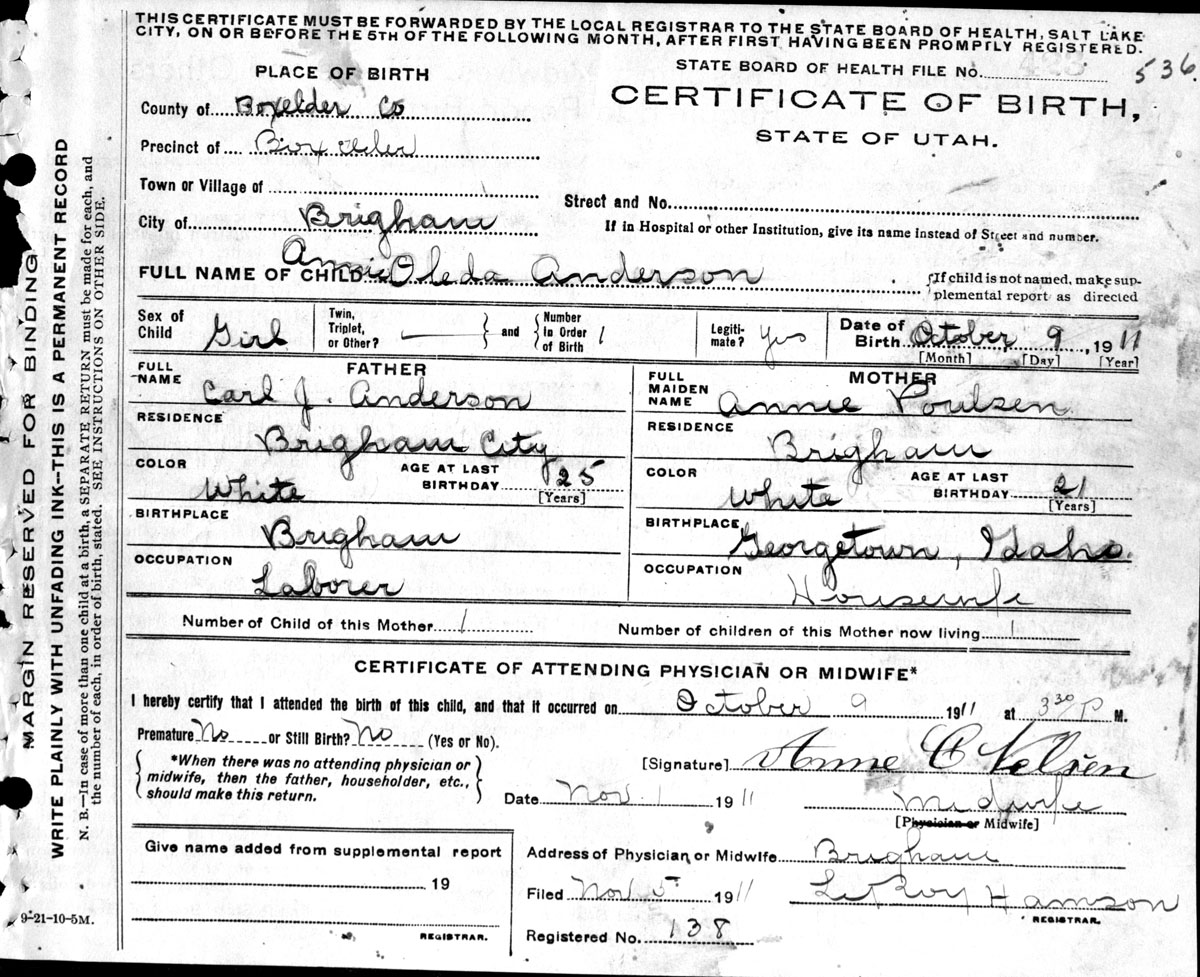 THIS CERTIFICATE MUST BE FORWARDED BY THE LOCAL REGISTRAR TO THE STATE BOARD OF HEALTH, SALT LAKE
CITY, ON OR BEFORE THE 5TH OF THE FOLLOWING MONTH, AFTER FIRST HAVING BEEN PROMPTLY REGISTERED.
PLACE OF BIRTH
STATE BOARD OF HEALTH FILE No. 536.
CERTIFICATE OF BIRTH,
STATE OF UTAH.
County of Boxelder Co
Precinct of Box elder
Town or Village of
Street and No.
City of Brigham
If in Hospital or other Institution, give its name instead of Street and number.
FULL NAME OF CHILD Annie Oleda Anderson
{If child is not named, make sup-
plemental report as directed
Sex of Child Girl
Twin, Triplet, or Other? —
and
Number in Order of Birth 1
Legiti-mate? Yes
Date of Birth October 9, 1911
[Month] [Day] [Year]
FATHER
FULL NAME Carl J. Anderson
RESIDENCE Brigham City
COLOR White
AGE AT LAST BIRTHDAY 25
[Years]
BIRTHPLACE Brigham
OCCUPATION Laborer
MOTHER
FULL MAIDEN NAME Annie Poulsen
RESIDENCE Brigham
COLOR White
AGE AT LAST BIRTHDAY 21
[Years]
BIRTHPLACE Georgetown, Idaho.
OCCUPATION Housewife
Number of Child of this Mother 1
Number of children of this Mother now living 1
CERTIFICATE OF ATTENDING PHYSICIAN OR MIDWIFE*
I hereby certify that I attended the birth of this child, and that it occurred on October 9 1911 at 3 30 P M.
Premature No or Still Birth? No (Yes or No).
*When there was no attending physician or
midwife, then the father, householder, etc.,
should make this return.
[Signature] Anne C Nelsen
Date Nov 1 1911
Midwife
[Physician or Midwife]
Give name added from supplemental report
19
REGISTRAR.
Address of Physician or Midwife Brigham
Filed Nov 5 1911
LeRoy Hamson
REGISTRAR.
Registered No. 138
9-21-10-5M.
MARGIN RESERVED FOR BINDING
WRITE PLAINLY WITH UNFADING INK—THIS IS A PERMANENT RECORD
N. B.—In case of more than one child at a birth, a SEPARATE RETURN must be made for each, and
the number of each, in order of birth, stated. SEE INSTRUCTIONS ON OTHER SIDE.